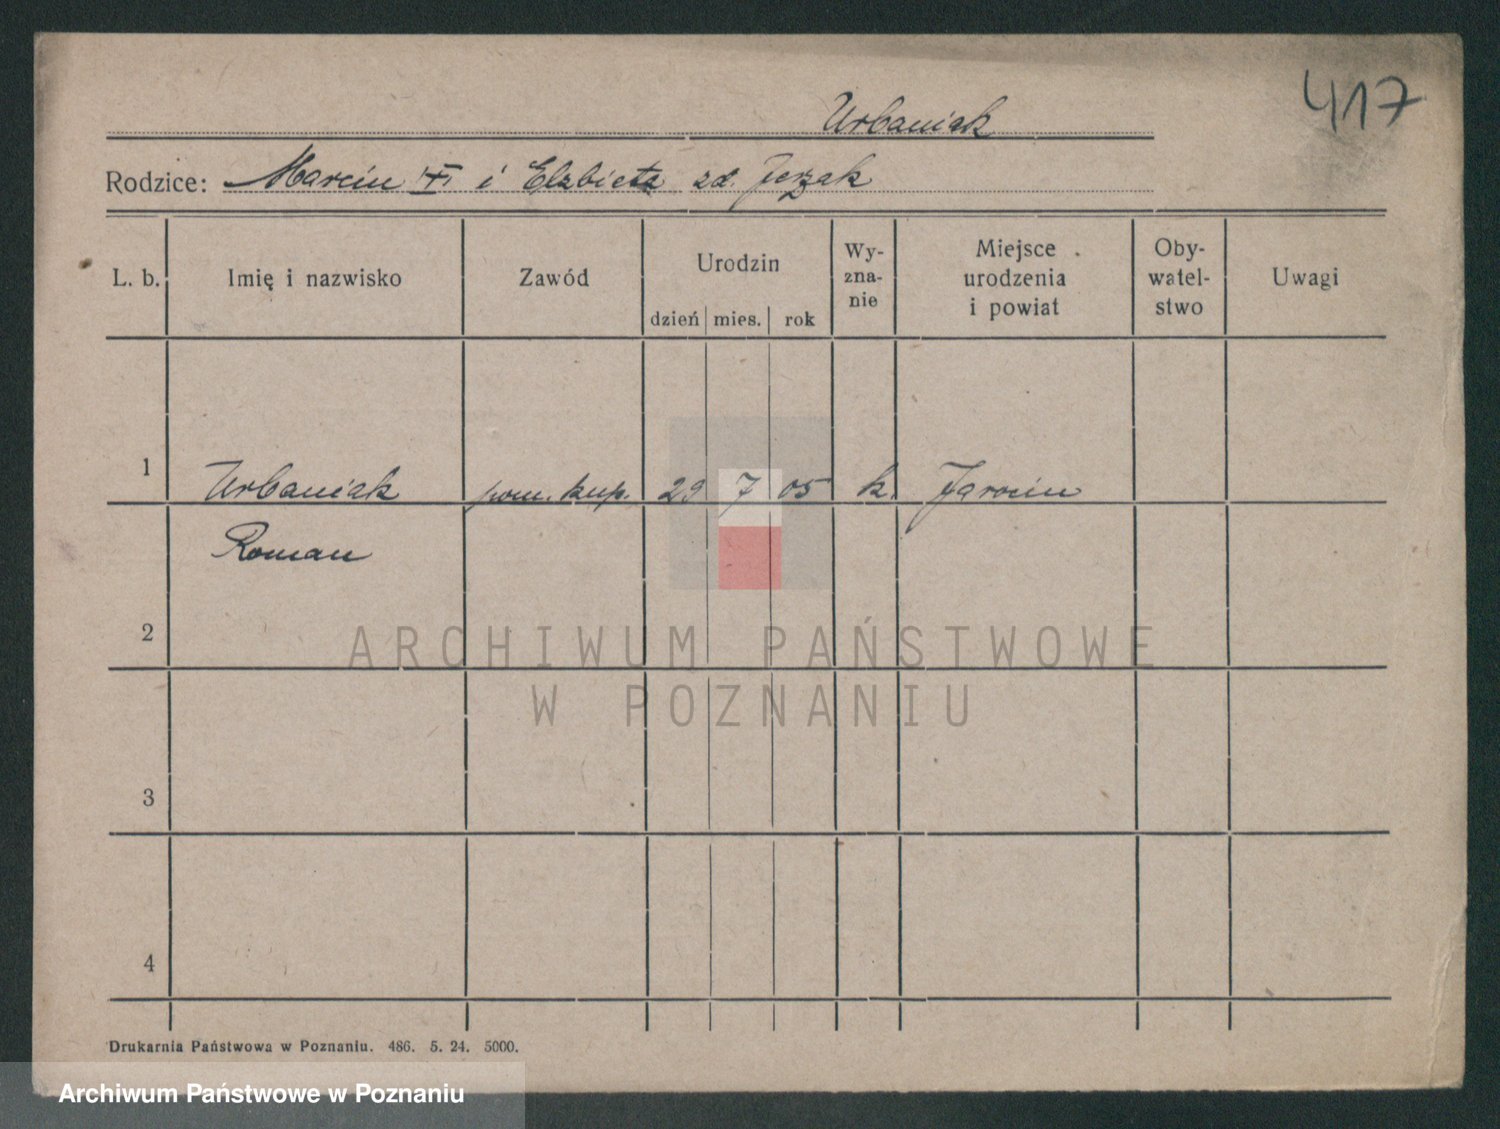 417
Urbaniak
Rodzice: Marcin i Elzbieta zd. Jerzak
L. b. Imię i nazwisko Zawód Urodzin dzień mies. rok Wy-zna-nie Miejsce urodzenia i powiat Oby-watel-stwo Uwagi
1 Urbaniak pom. kup. 29 7 05 k. Jarocin
Roman
2
3
4
ARCHIWUM PAŃSTWOWE
W POZNANIU
Drukarnia Państwowa w Poznaniu. 486. 5. 24. 5000.
Archiwum Państwowe w Poznaniu